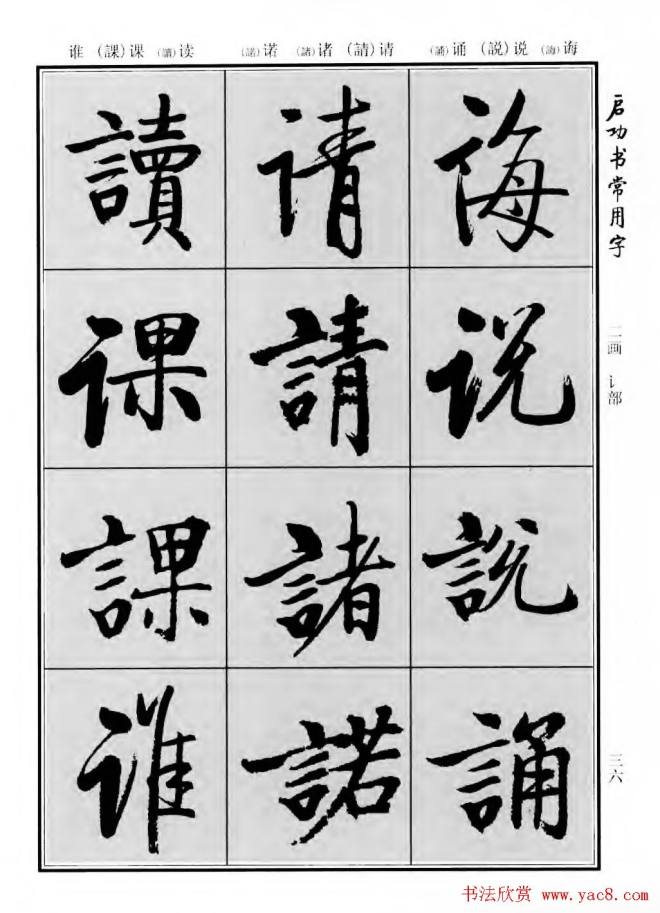 谁 (課)课 (讀)读 (諾)诺 (諸)诸 (請)请 (誦)诵 (説)说 (誨)诲
启功书常用字
二画 讠部
三六
诲说説誦
请請諸諾
讀课課谁
书法欣赏 www.yac8.com